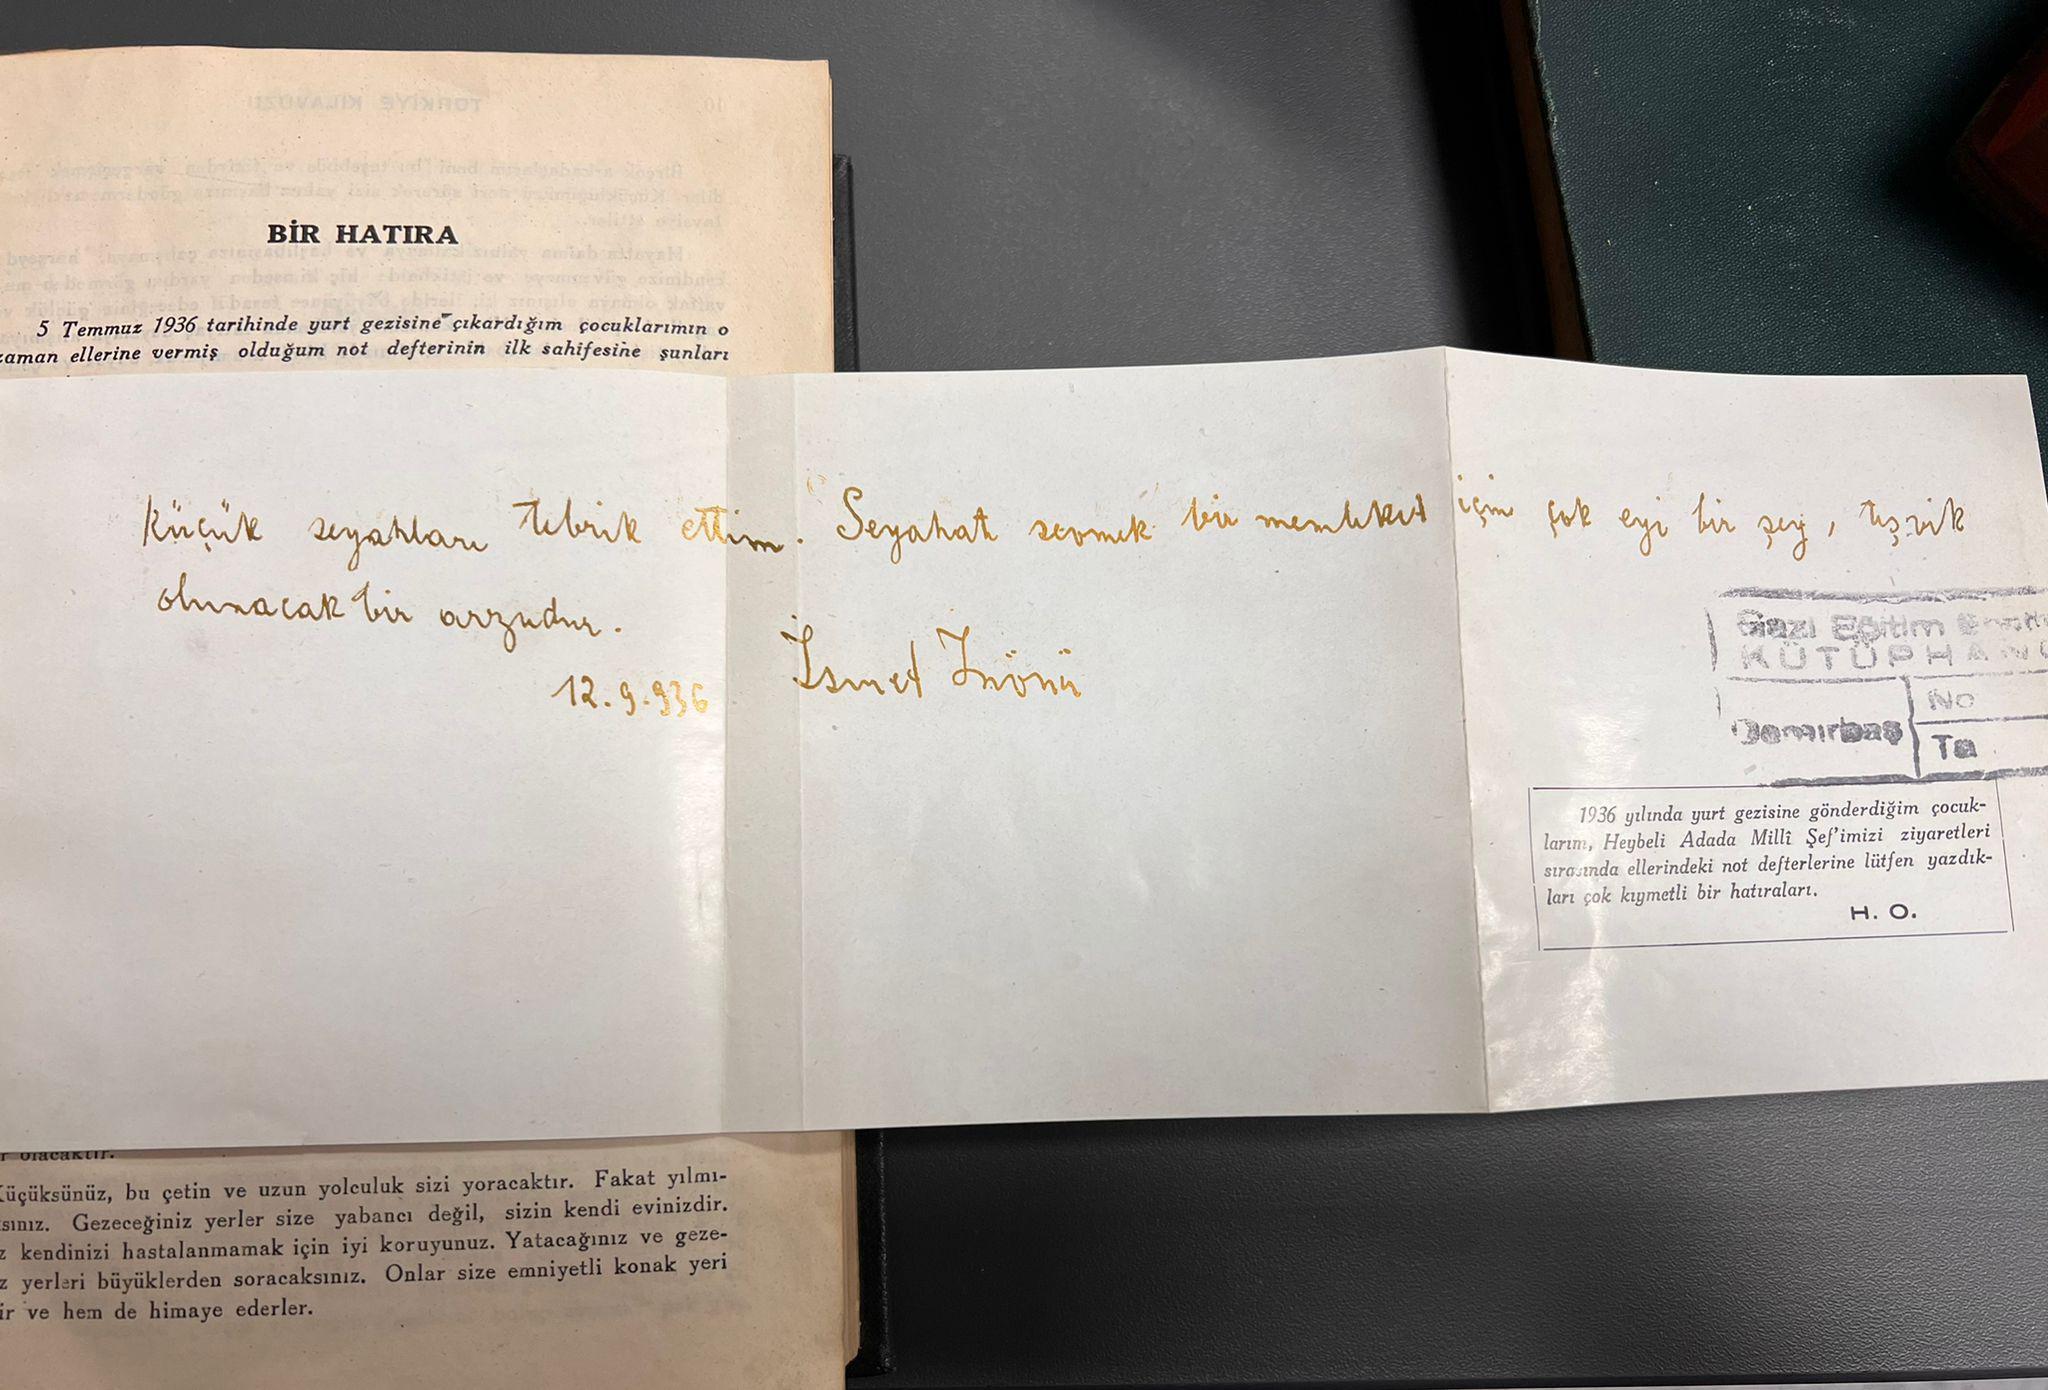 BİR HATIRA
5 Temmuz 1936 tarihinde yurt gezisine çıkardığım çocuklarımın o
zaman ellerine vermiş olduğum not defterinin ilk sahifesine şunları
Küçük seyahları tebrik ettim. Seyahat sevmek bir memleket için çok eyi bir şey, teşvik
olunacak bir arzudur.
12.9.936 İsmet İnönü
Gazi Eğitim
KÜTÜPHANE
Demirbaş
No
Ta
1936 yılında yurt gezisine gönderdiğim çocuk-
larım, Heybeli Adada Millî Şef'imizi ziyaretleri
sırasında ellerindeki not defterlerine lütfen yazdık-
ları çok kıymetli bir hatıraları.
H. O.
olacaktır.
Küçüksünüz, bu çetin ve uzun yolculuk sizi yoracaktır. Fakat yılmı-
sınız. Gezeceğiniz yerler size yabancı değil, sizin kendi evinizdir.
z kendinizi hastalanmamak için iyi koruyunuz. Yatacağınız ve geze-
z yerleri büyüklerden soracaksınız. Onlar size emniyetli konak yeri
ir ve hem de himaye ederler.